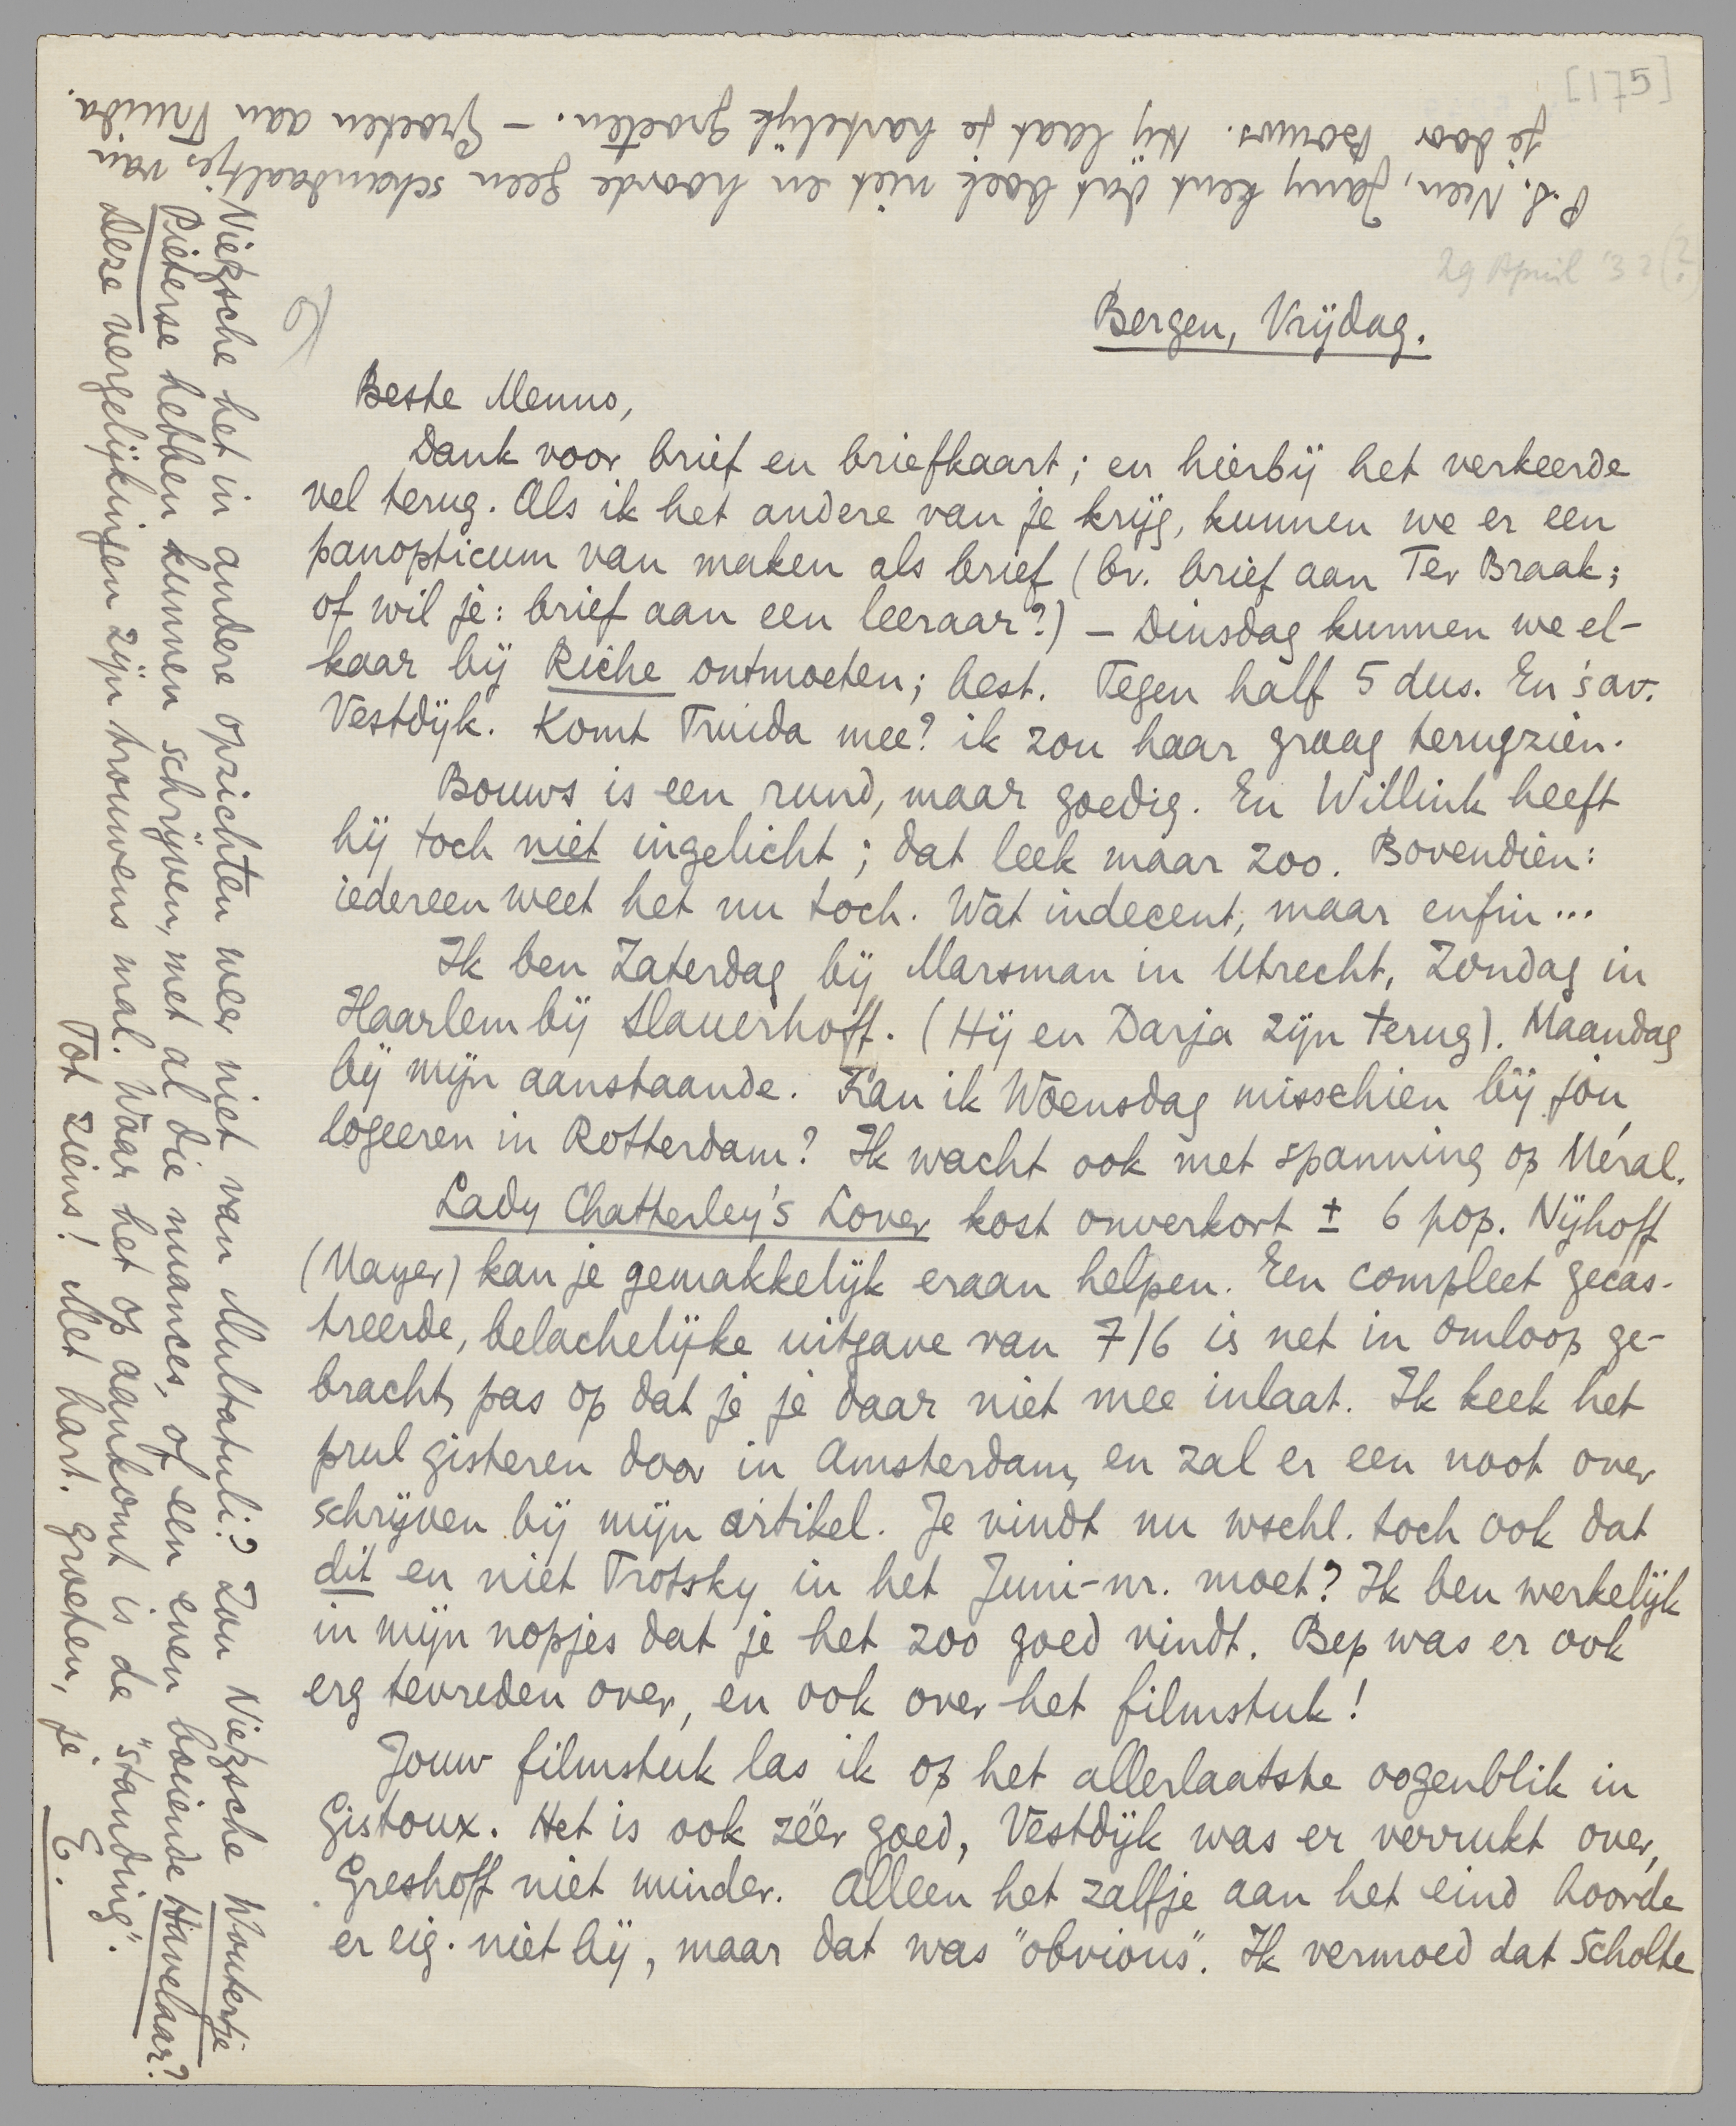 [175]
29 April '32(?)
Bergen, Vrijdag.
Beste Menno,
Dank voor brief en briefkaart; en hierbij het verkeerde
vel terug. Als ik het andere van je krijg, kunnen we er een
panopticum van maken als brief (bv. brief aan Ter Braak;
of wil je: brief aan een leeraar?) – Dinsdag kunnen we el-
kaar bij Riche ontmoeten; best. Tegen half 5 dus. En 's av.
Vestdijk. Komt Truida mee? ik zou haar graag terugzien.
Bouws is een rund, maar goedig. En Willink heeft
hij toch niet ingelicht; dat leek maar zoo. Bovendien:
iedereen weet het nu toch. Wat indecent, maar enfin...
Ik ben Zaterdag bij Marsman in Utrecht, Zondag in
Haarlem bij Slauerhoff. (Hij en Darja zijn terug). Maandag
bij mijn aanstaande. Kan ik Woensdag misschien bij jou
logeeren in Rotterdam? Ik wacht ook met spanning op Méral.
Lady Chatterley's Lover kost onverkort ± 6 pop. Nijhoff
(Mayer) kan je gemakkelijk eraan helpen. Een compleet gecas-
treerde, belachelijke uitgave van 7/6 is net in omloop ge-
bracht, pas op dat je je daar niet mee inlaat. Ik keek het
prul gisteren door in Amsterdam, en zal er een noot over
schrijven bij mijn artikel. Je vindt nu wschl. toch ook dat
dit en niet Trotsky in het Juni-nr. moet? Ik ben werkelijk
in mijn nopjes dat je het zoo goed vindt. Bep was er ook
erg tevreden over, en ook over het filmstuk!
Jouw filmstuk las ik op het allerlaatste oogenblik in
Gistoux. Het is ook zéér goed, Vestdijk was er verrukt over,
Greshoff niet minder. Alleen het zalfje aan het eind hoorde
er eig. niet bij, maar dat was "obvious". Ik vermoed dat Scholte
Nietzsche het in andere opzichten weer niet van Multatuli? Zou Nietzsche Woutertje
Pieterse hebben kunnen schrijven, met al die nuances, of een even boeiende Havelaar?
Deze vergelijkingen zijn trouwens mal. Waar het op aankomt is de "standing".
Tot ziens! Met hart. groeten, je E.
P.S. Neen, Jany kent dat boek niet en hoorde geen schandaaltjes van
je door Bouws. Hij laat je hartelijk groeten. – Groeten aan Truida.